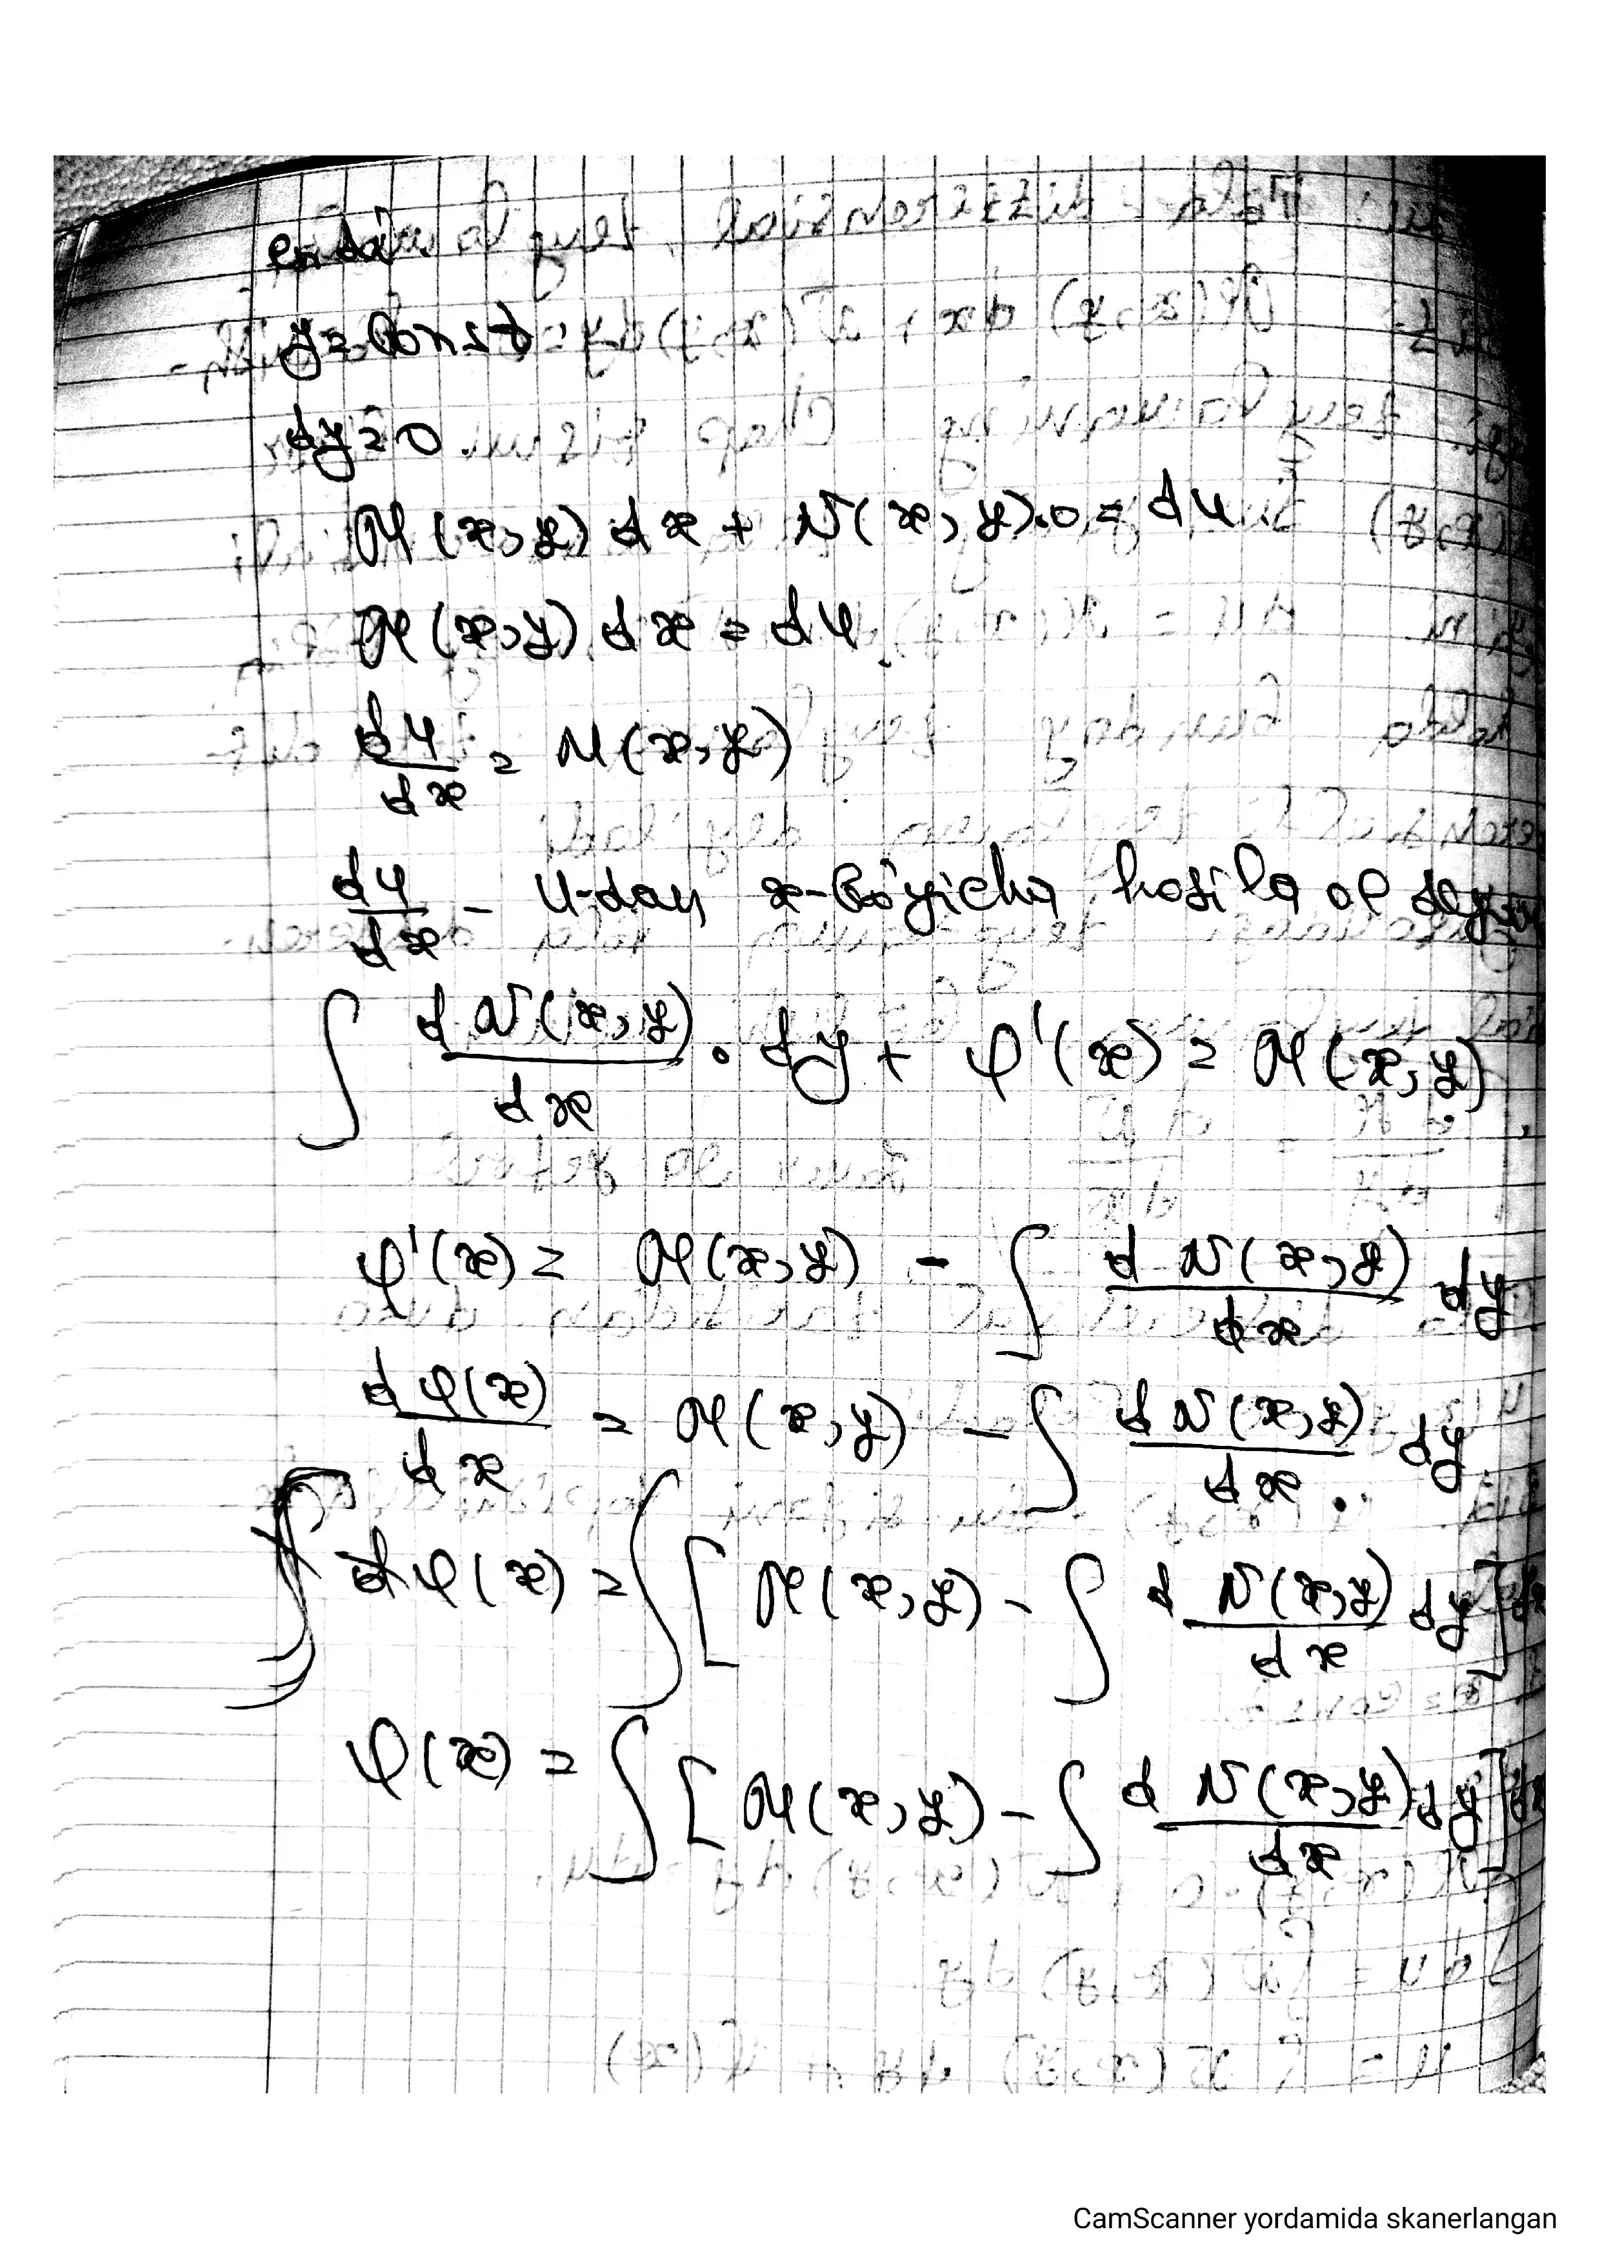 endi
y = const
dy = 0
M(x,y) dx + N(x,y)·0 = du
M(x,y) dx = du
du/dx = M(x,y)
du/dx - U-dan x-bo'yicha hosila
∫ dN(x,y)/dx · dy + φ'(x) = M(x,y)
φ'(x) = M(x,y) - ∫ dN(x,y)/dx dy
dφ(x)/dx = M(x,y) - ∫ dN(x,y)/dx dy
∫ dφ(x) = ∫ [M(x,y) - ∫ dN(x,y)/dx dy] dx
φ(x) = ∫ [M(x,y) - ∫ dN(x,y)/dx dy] dx
CamScanner yordamida skanerlangan